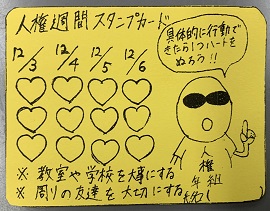 人権週間 スタンプカード
12/3 12/4 12/5 12/6
具体的に行動で
きたら1つハートを
ぬろう!!
※教室や学校を大事にする
※周りの友達を大切にする
人権
年 組
名(